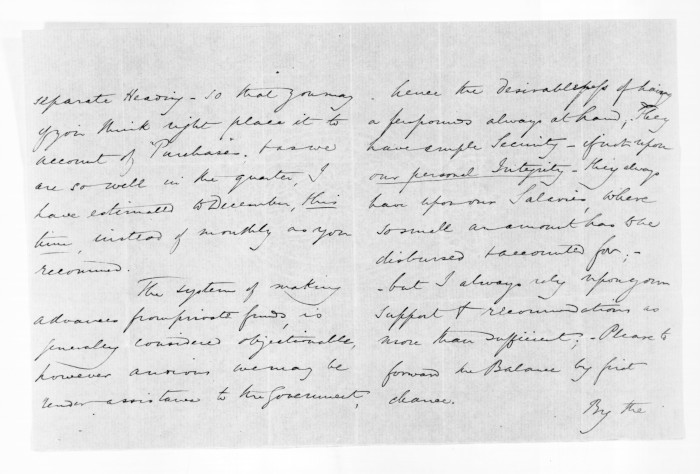 separate Heading - so that you may
if you think right place it to
account of Purchases. & as we
are so well in the quarter, I
have estimated to December, this
time, instead of monthly as you
recommend.
The system of making
advances from private funds, is
generally considered objectionable,
however anxious we may be
render assistance to the Government,
hence the desirableness of having
a few pounds always at hand; They
have ample Security - if not upon
our personal Integrity - they always
have upon our Salaries, where
so small an amount has to be
disbursed & accounted for; -
- but I always rely upon your
Support & recommendations as
more than sufficient; - Please to
forward the Balance by first
chance.
By the